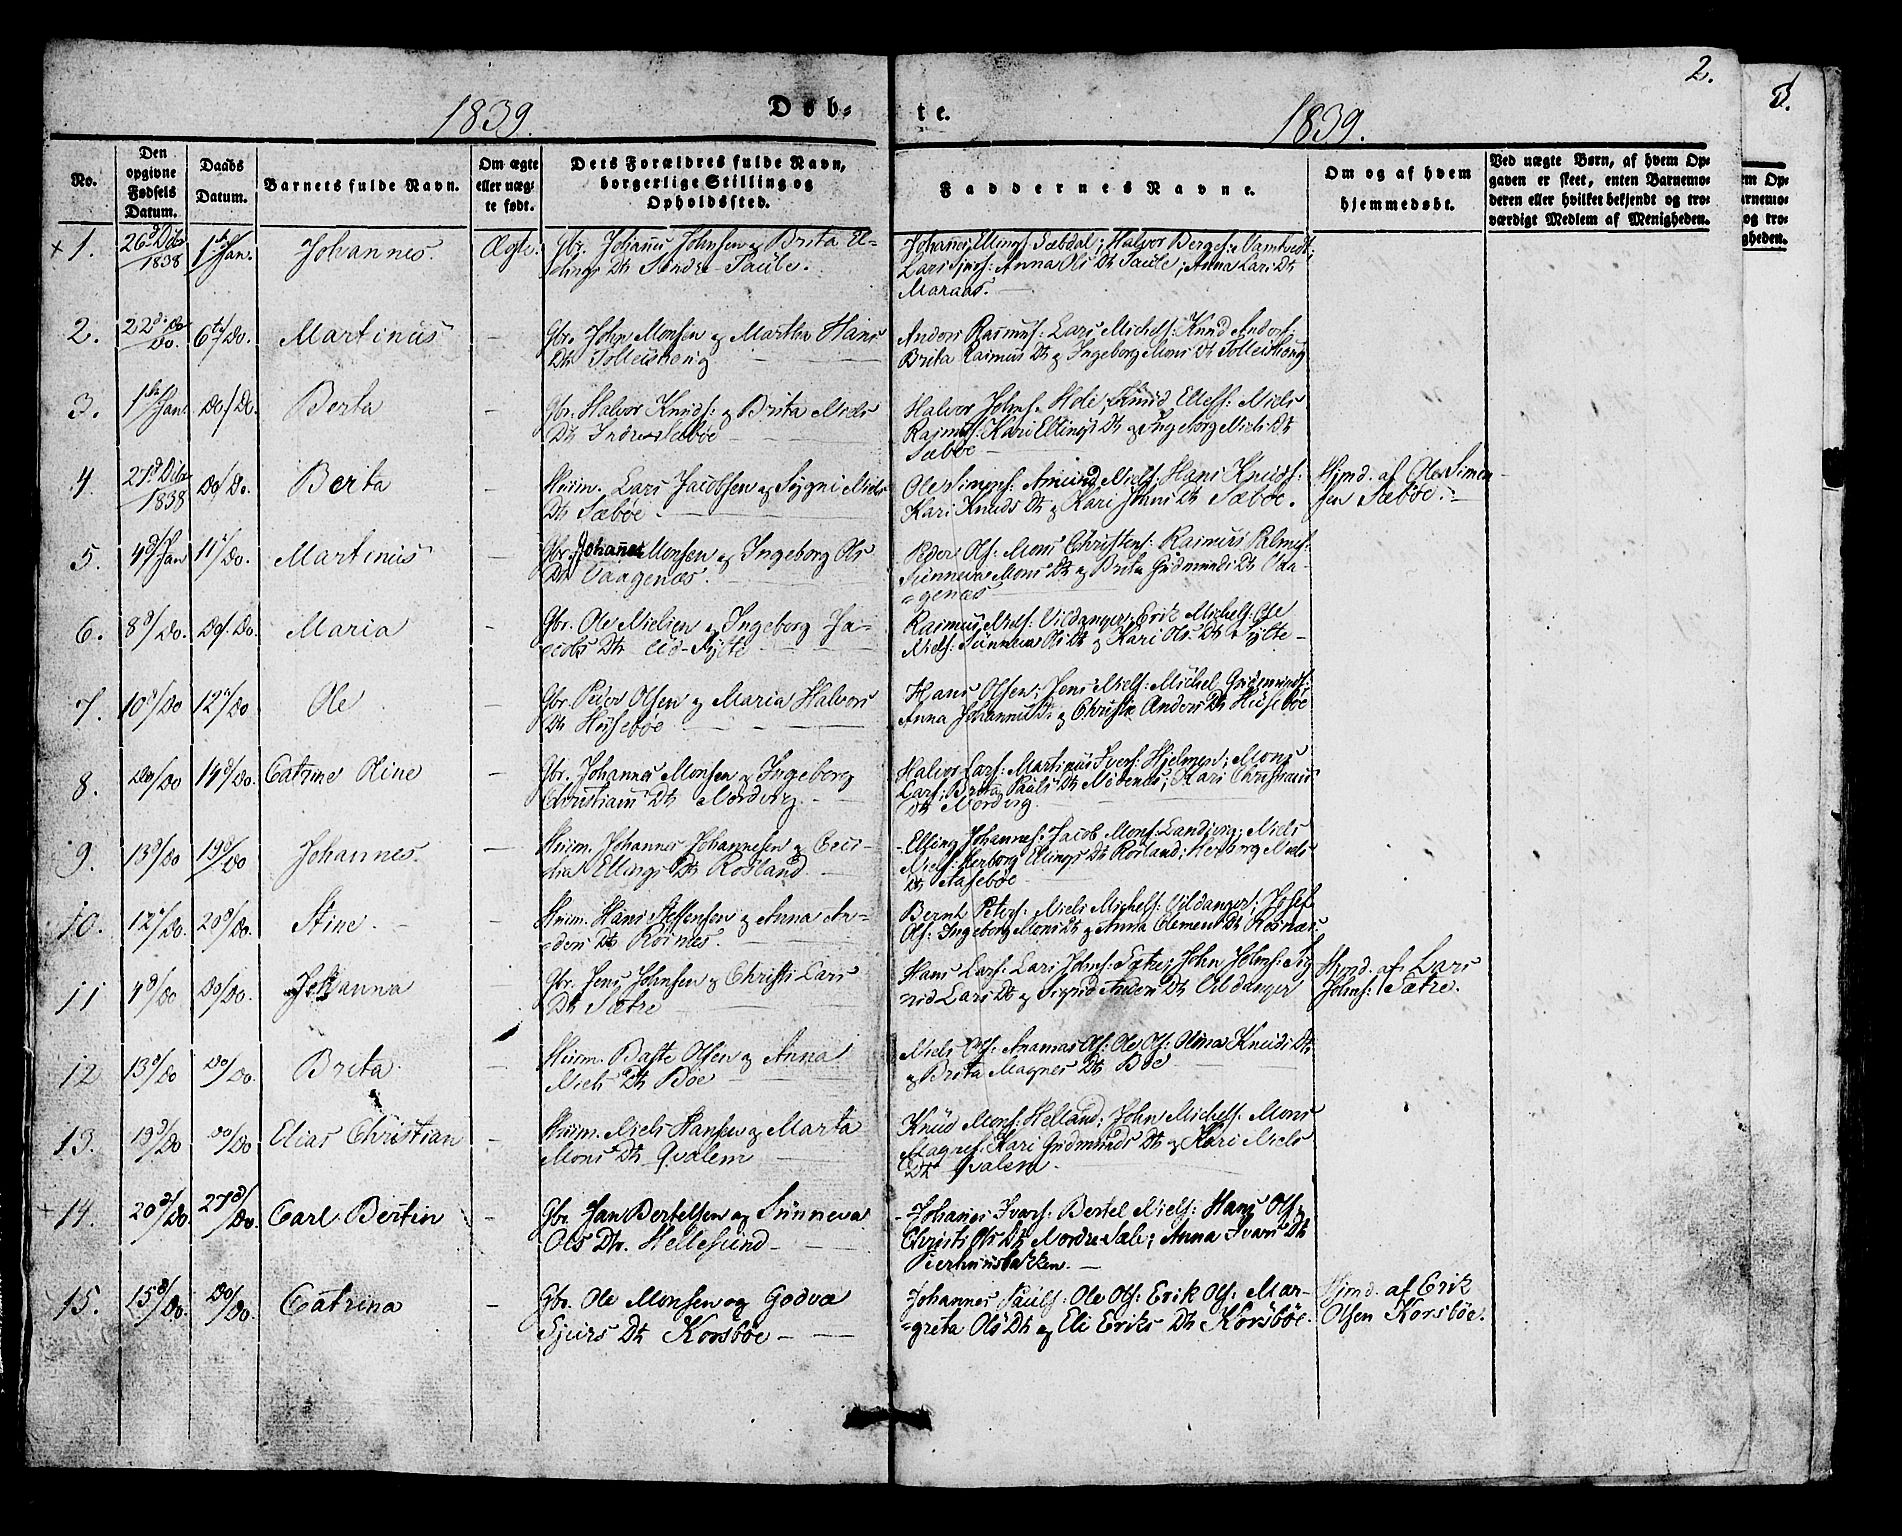 2.
1839. Døb-
te. 1839.
No.
Den opgivne Fødsels Datum.
Daabs Datum.
Barnets fulde Navn.
Om ægte eller uægte født.
Dets Forældres fulde Navn, borgerlige Stilling og Opholdssted.
Faddernes Navne.
Om og af hvem hjemmedøbt.
Ved uægte Børn, af hvem Opgaven er skeet, enten Barnemoderen eller hvilket bekjendt og troværdigt Medlem af Menigheden.
+ 1. 26d Dbr 1838 1ste Jan. Johannes. Ægte.
Gbr. Johanes Johnsen og Brita El-
lings Dtr Søndre Taule.
Johanes Ellings: Sæbdal; Halvor Berges: Vamtvedt;
Lars Sjurs: Anna Ols Dtr Taule; Anna Lars Dtr
Maraas.
2. 22d Do Do. 6te/Do. Martinus —
Gbr. John Monsen og Martha Hans
Dtr Tolleishoug
Anders Rasmus: Lars Michels: Knud Anders:
Brita Rasmus Dtr og Ingeborg Mons Dtr Tolleishoug
3. 1ste/Jan. Do/Do. Berta —
Gbr. Halvor Knuds: og Brita Niels
Dtr Indre Sæbøe —
Halvor Johns. Hole; Knud Ellefs: Niels
Rasms: Kari Ellings Dtr og Ingeborg Niels Dtr
Sæbøe —
4. 27d Dbr 1838 Do/Do. Berta —
Huusm. Lars Jacobsen og Sygni Niels
Dtr Sæbøe. —
Ole Simons: Amund Niels: Hans Knuds:
Kari Knuds Dtr og Kari Johns Dtr Sæbøe.
Hjmd. af Ole Simon-
sen Sæbøe.
5. 4d/Jan 11te/Do. Martinus —
Gbr. Johanes Monsen og Ingeborg Ols
Dtr Vaagenæs.
Peder Ols: Mons Christens: Rasmus
Sunneva Mons Dtr og Brita Gudmunds Dtr Vaa-
genæs
6. 8d/Do. Do/Do. Maria —
Gbr. Ole Nielsen og Ingeborg Ja-
cobs Dtr Eid-Sylte —
Rasmus Niels: Vildanger; Erik Michels: Ole
Niels: Sunneva Ols Dtr og Kari Ols Dtr Sylte —
7. 10d/Do 12te/Do Ole —
Gbr. Peder Olsen og Maria Halvors
Dtr Husebøe —
Hans Olsen; Jens Niels: Michel Gudmunds:
Anna Johannes Dtr og Christi Anders Dtr Husebøe
8. Do/Do 14d/Do. Catrine Oline —
Gbr. Johannes Monsen og Ingeborg
Christians Dtr Nordvig. —
Halvor Lars: Martinus Ivers: Hjelmen; Mons
Lars: Brita Pauls Dtr Nødenæs; Kari Christians
Dtr Nordvig.
9. 13d/Do 19d/Do Johannes. —
Huusm. Johannes Johannesen og Ceci-
lia Ellings Dtr Rosland —
Elling Johannes: Jacob Mons: Landsvig; Niels
Niels: Herborg Ellings Dtr Rosland; Herborg Niels
Dtr Aasebøe
10. 12te/Do. 20d/Do. Stine. —
Huusm. Hans Steffensen og Anna An-
ders Dtr Rosnes. —
Bernt Peters: Niels Michels: Vildanger; Josef
Ols: Ingeborg Mons Dtr og Anna Clement Dtr Rosnæs.
11 4d/Do Do/Do. Johanna —
Gbr. Jens Johnsen og Christi Lars
Dtr Sætre —
Hans Lars: Lars Johns: Sætre; John Johns: Sig-
nid Lars Dtr og Sigrid Anders Dtr Vildanger
Hjmd. af Lars
Johns: Sætre.
12 13d/Do Do/Do. Brita. —
Huusm. Baste Olsen og Anna
Niels Dtr Bøe —
Niels Ols: Ananias Ols: Ole Ols: Olina Knuds Dtr
og Brita Magnes Dtr Bøe —
13. 19d/Do Do/Do Elias Christian —
Huusm. Niels Hansen og Marta
Mons Dtr Qvalem —
Knud Mons: Helland; John Michels. Mons
Magnes: Kari Gudmunds Dtr og Kari Niels
Dtr Qvalem.
+ 14. 20d/Do. 27d/Do. Carl Bertin —
Gbr. Jan Bertelsen og Sunneva
Ols Dtr. Hellesund —
Johanes Ivars: Bertel Niels: Hans Ols:
Christi Ols Dtr Nordre Sæle; Anna Ivars Dtr
15. 15d/Do. Do/Do. Catrina —
Gbr. Ole Monsen og Godva
Sjurs Dtr Korsbøe —
Johannes Pauls: Ole Ols: Erik Ols: Mar-
greta Ols Dtr og Eli Eriks Dtr Korsbøe.
Hjmd. af Erik
Olsen Korsbøe.